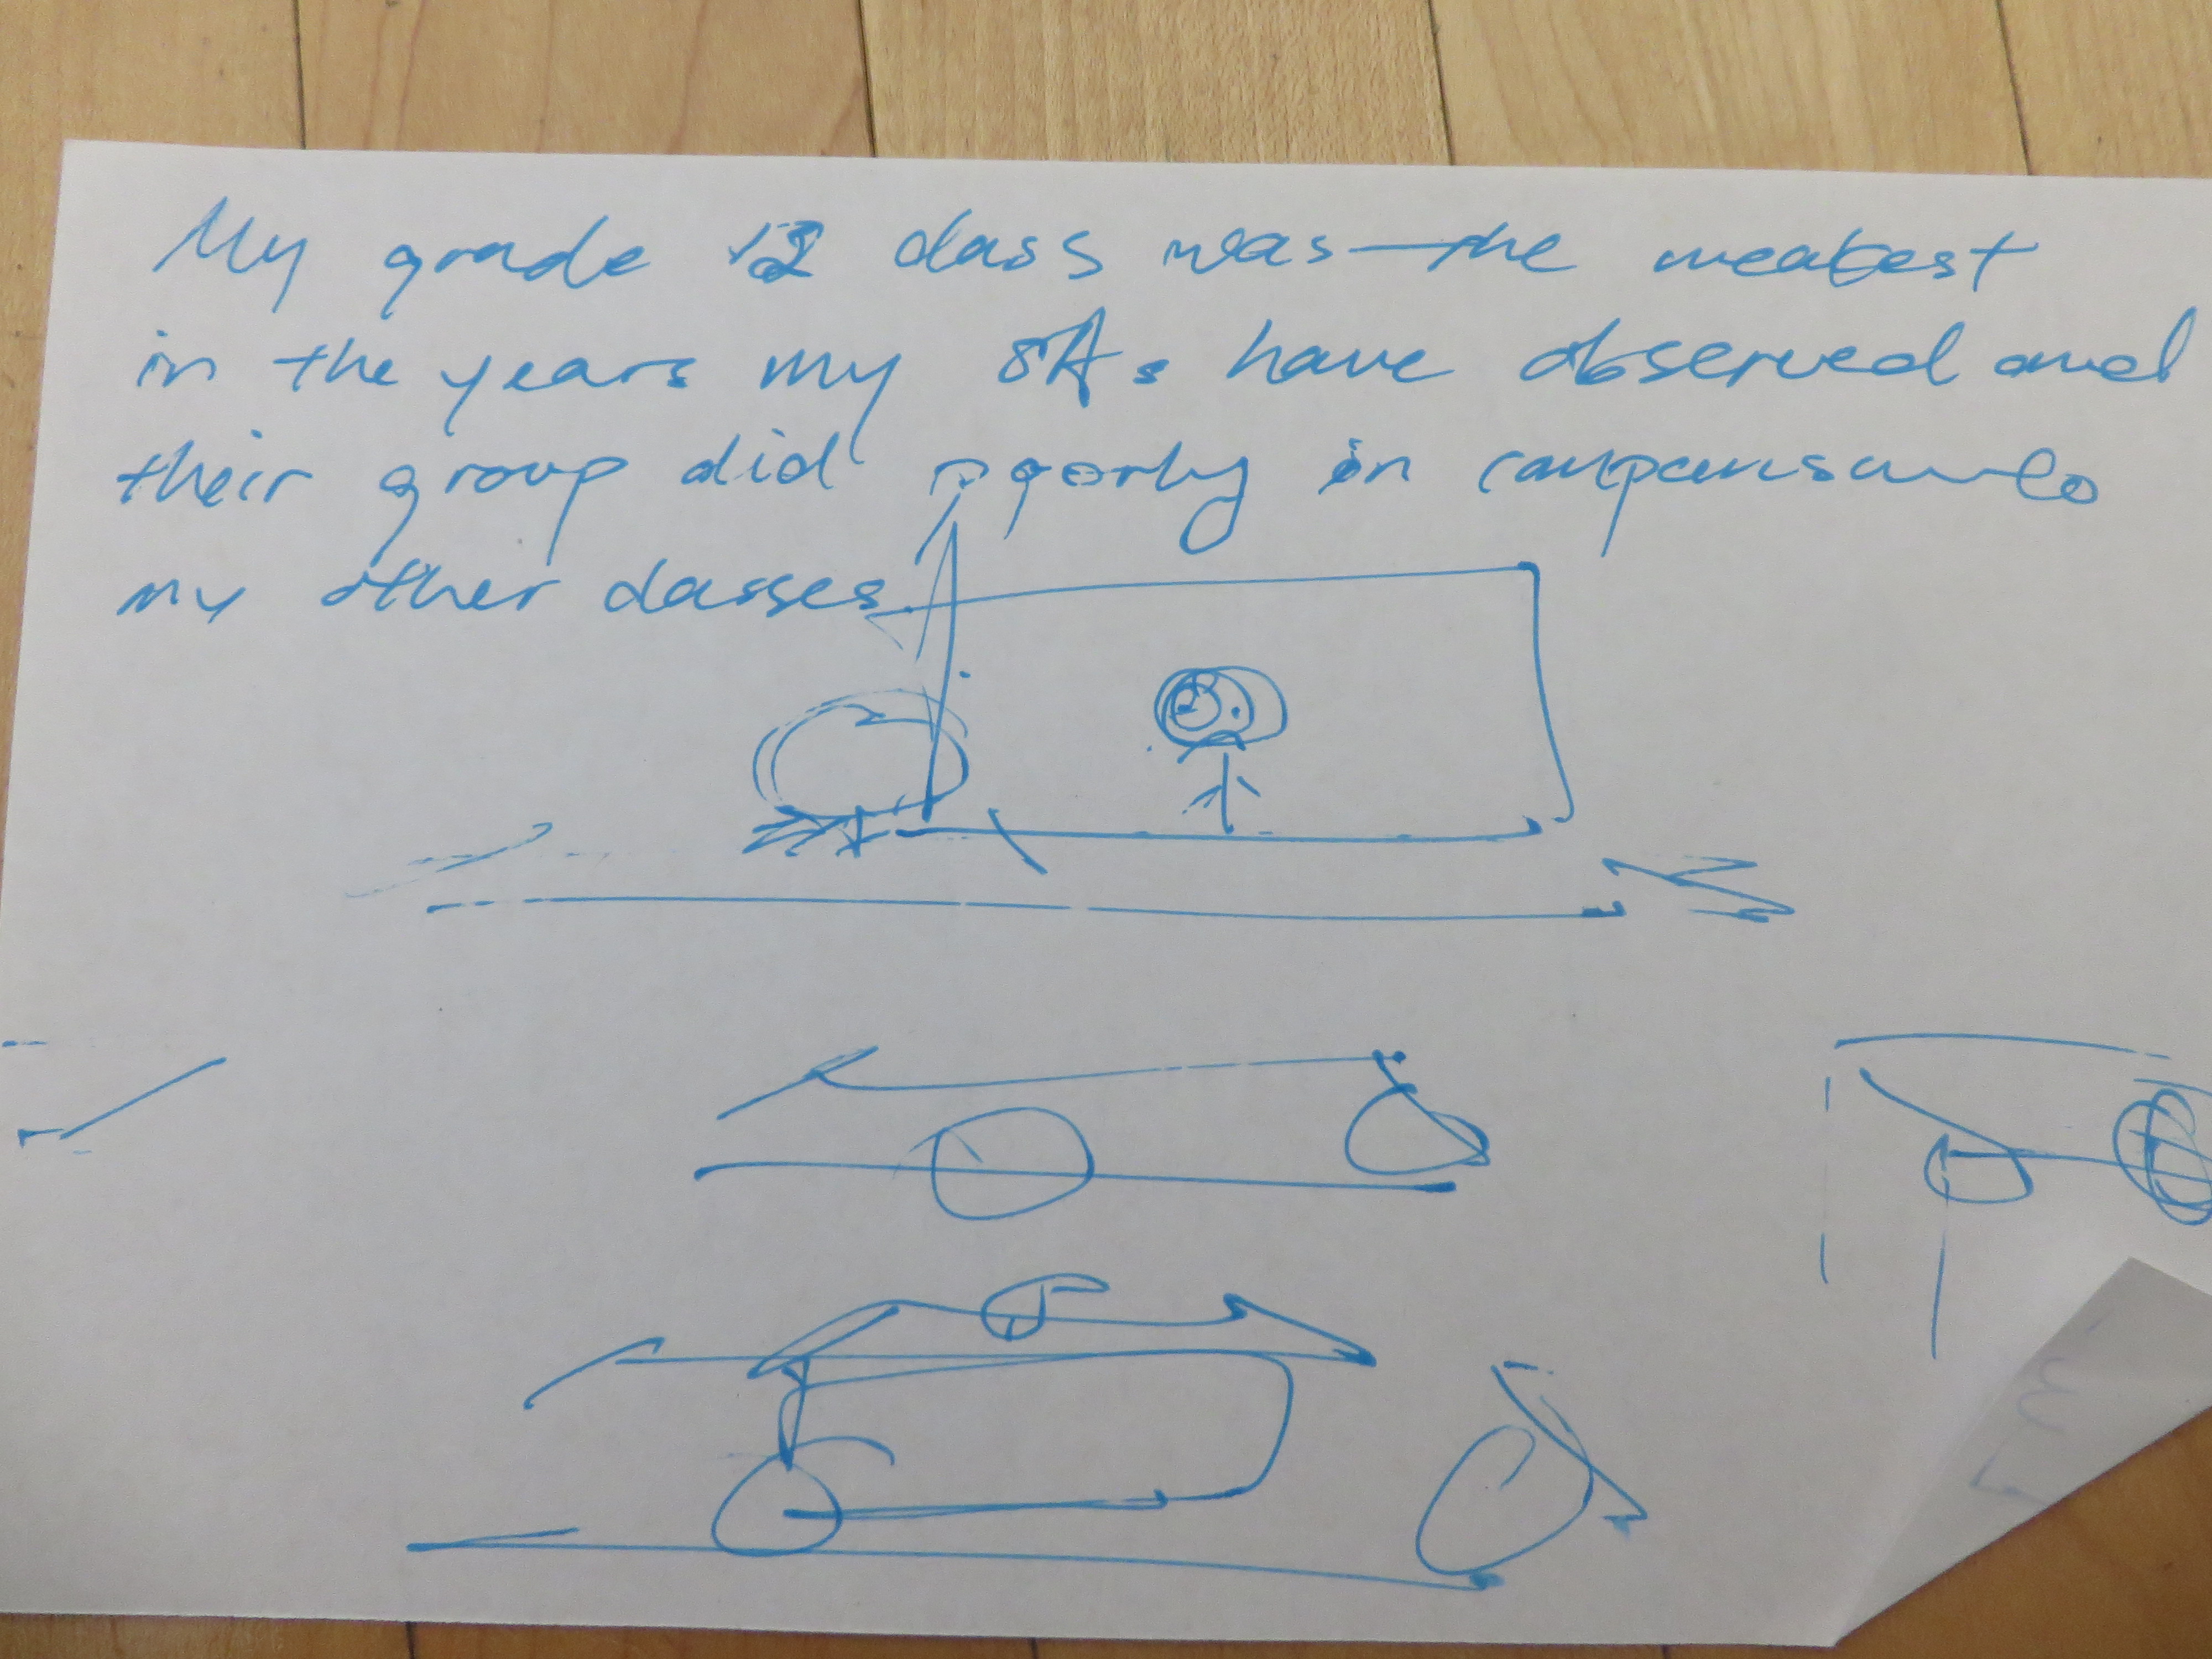 My grade 12 class was the weakest
in the years my 8As have observed and
their group did poorly in comparison to
my other classes